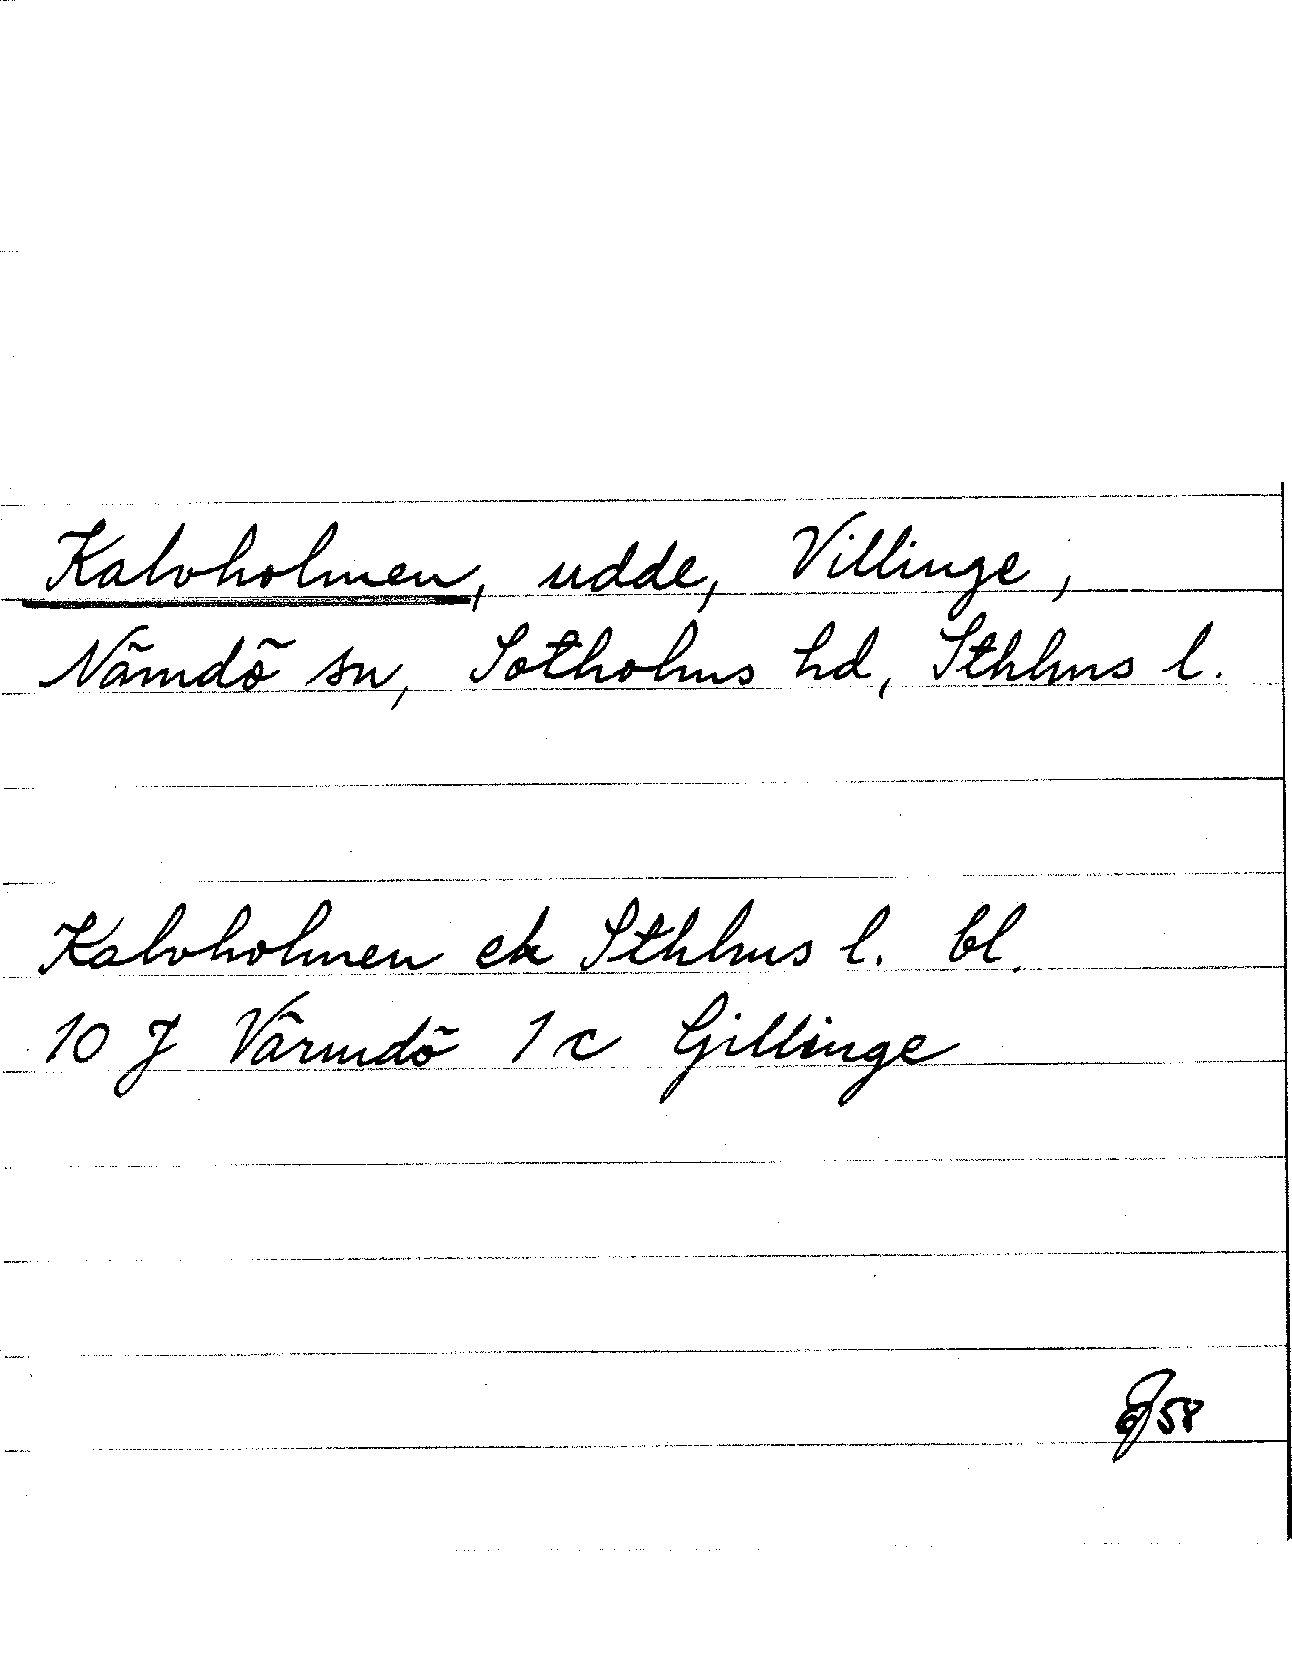 Kalvholmen, udde, Villinge,
Nämdö sn, Sotholms hd, Sthlms l.
Kalvholmen ek Sthlms l. bl.
10 J Värmdö 1 c Gillinge
58